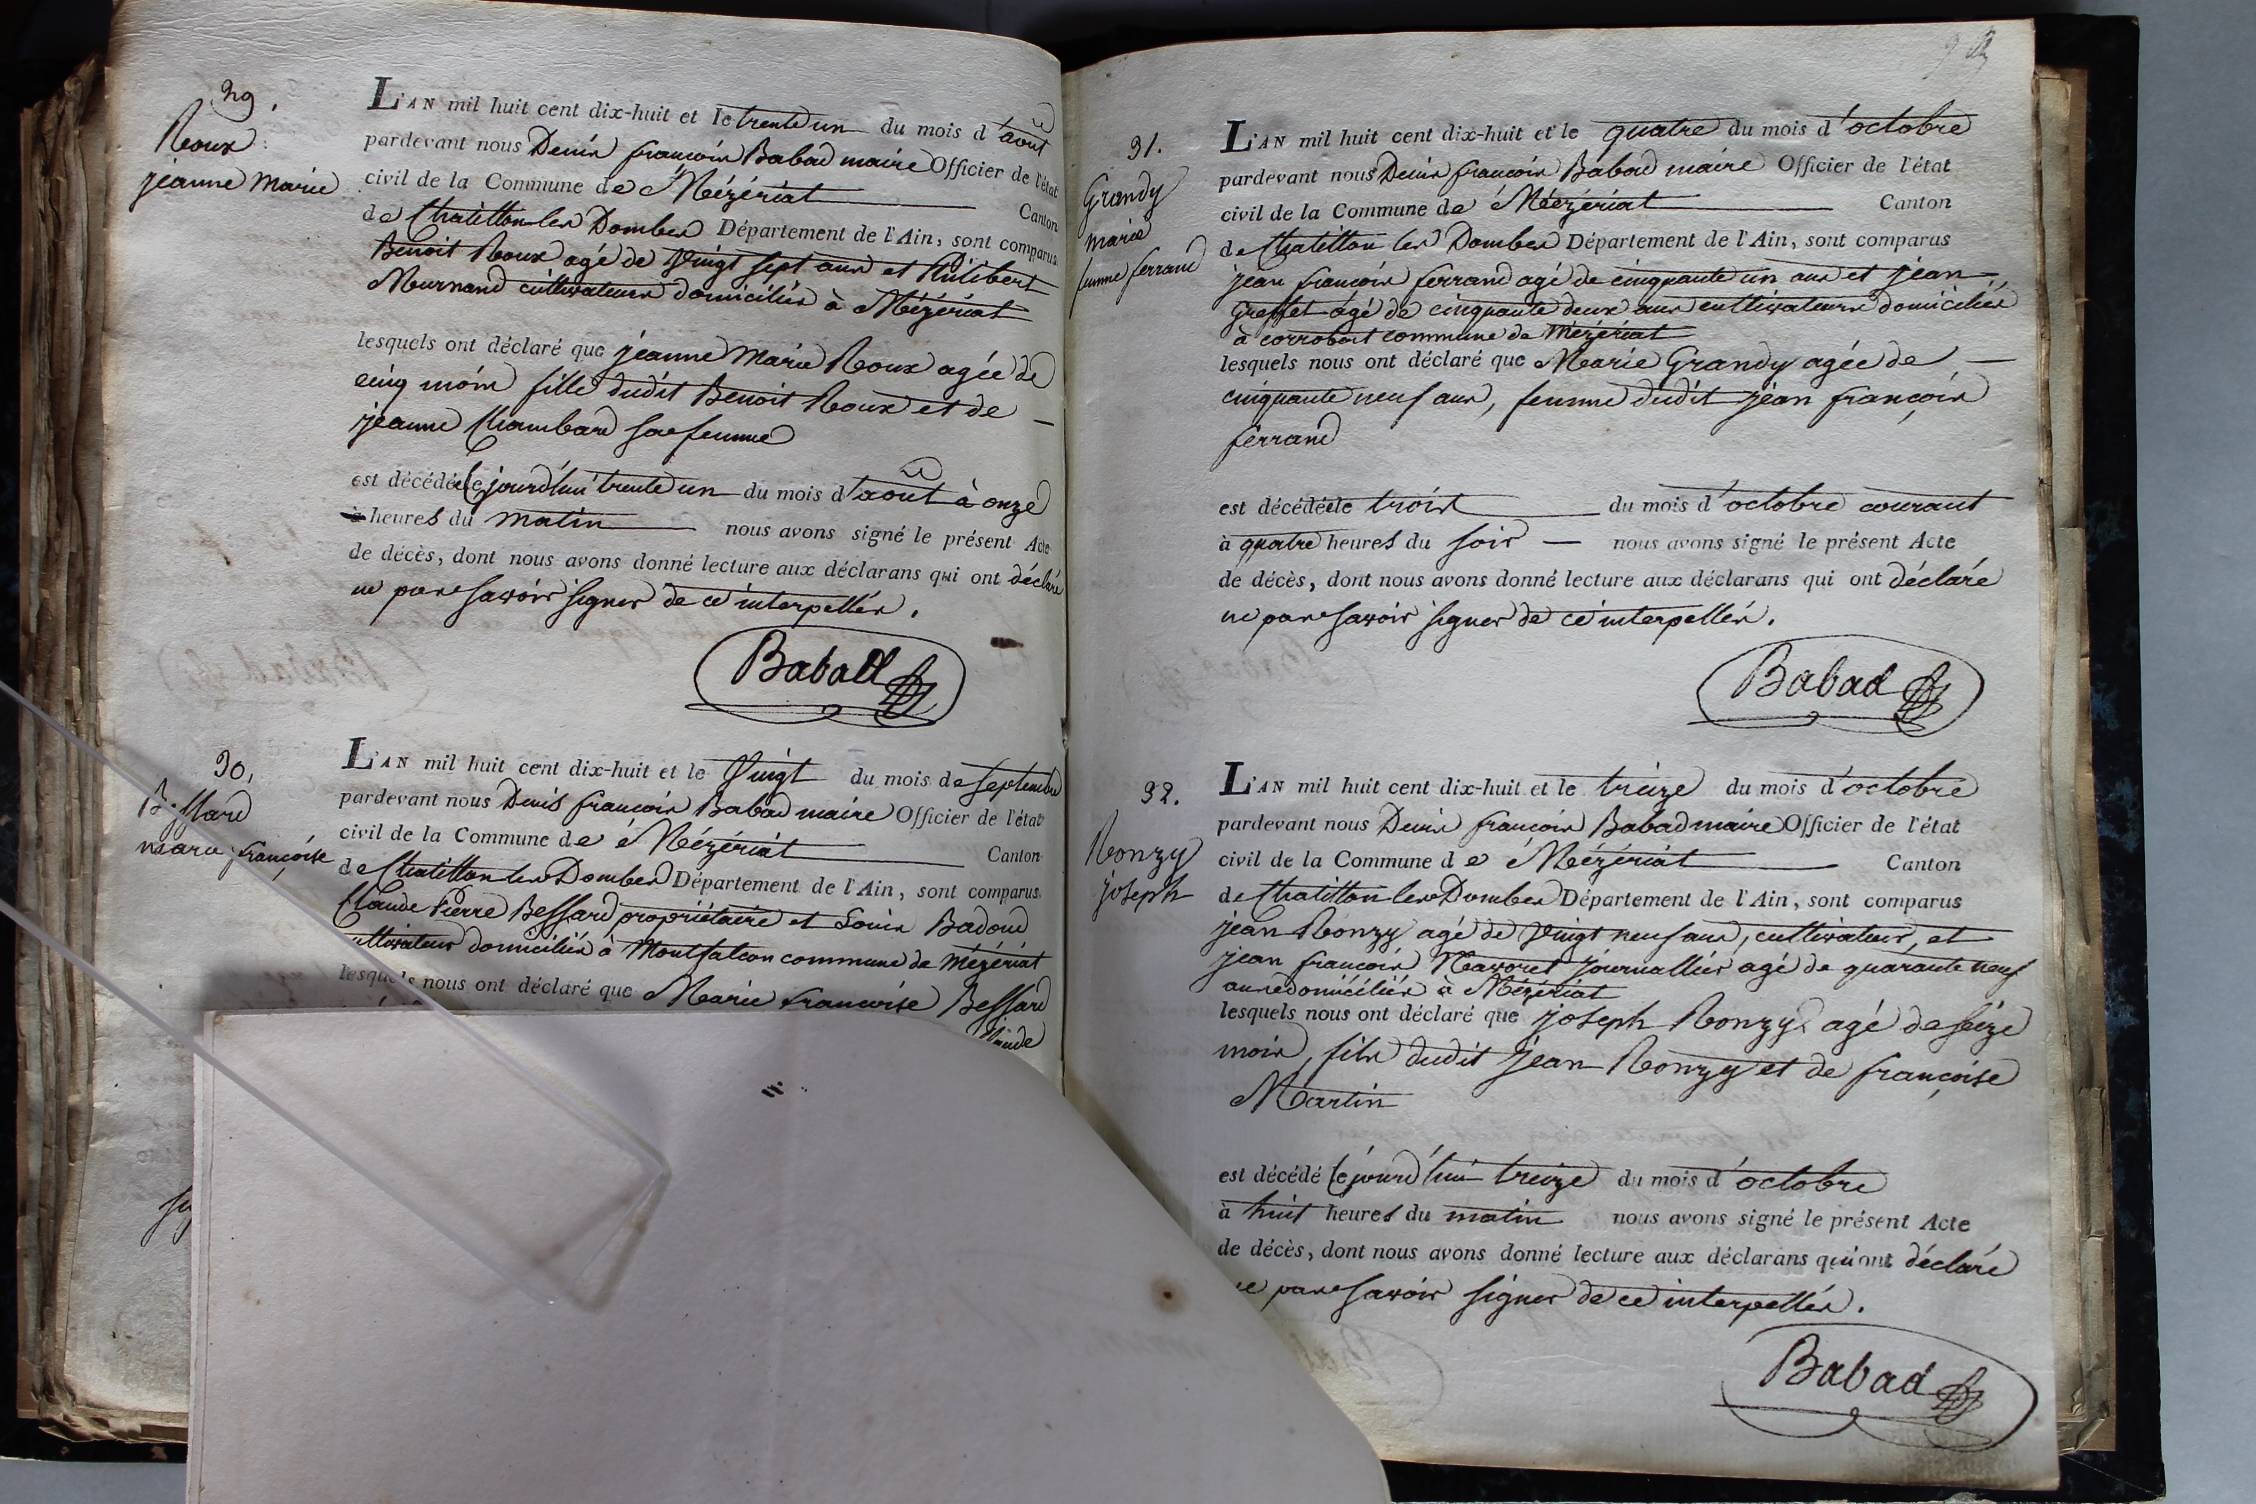 29.
Roux
jeanne Marie
L'AN mil huit cent dix-huit et le trente un du mois d'août
pardevant nous Denis françois Babad maire Officier de l'état
civil de la Commune de Mézériat Canton
de Chatillon les Dombes Département de l'Ain, sont comparus
Benoit Roux agé de Vingt sept ans et Philibert
Murnand cultivateurs domiciliés à Mézériat
lesquels ont déclaré que jeanne Marie Roux agée de
cinq mois fille dudit Benoit Roux et de
jeanne Chambard sa femme
est décédée cejourd'hui trente un du mois d'août à onze
heures du matin nous avons signé le présent Acte
de décès, dont nous avons donné lecture aux déclarans qui ont déclaré
ne pas savoir signer de ce interpellés.
Babad
30.
Bessard
marie françoise
L'AN mil huit cent dix-huit et le Vingt du mois de septembre
pardevant nous Denis françois Babad maire Officier de l'état
civil de la Commune de Mézériat Canton
de Chatillon les Dombes Département de l'Ain, sont comparus
Claude Pierre Bessard propriétaire et Louis Badoud
cultivateur domiciliés à Montfalcon commune de Mézériat
lesquels nous ont déclaré que Marie francoise Bessard
31.
Grandy
marie
femme ferrand
L'AN mil huit cent dix-huit et le quatre du mois d'octobre
pardevant nous Denis françois Babad maire Officier de l'état
civil de la Commune de Mézériat Canton
de Chatillon les Dombes Département de l'Ain, sont comparus
jean françois ferrand agé de cinquante un ans et jean
Greffet agé de cinquante deux ans cultivateurs domiciliés
à corrobert commune de Mézériat
lesquels nous ont déclaré que Marie Grandy agée de
cinquante neuf ans, femme dudit jean françois
ferrand
est décédée le trois du mois d'octobre courant
à quatre heures du soir nous avons signé le présent Acte
de décès, dont nous avons donné lecture aux déclarans qui ont déclaré
ne pas savoir signer de ce interpellés.
Babad
32.
Ronzy
joseph
L'AN mil huit cent dix-huit et le treize du mois d'octobre
pardevant nous Denis françois Babad maire Officier de l'état
civil de la Commune de Mézériat Canton
de Chatillon les Dombes Département de l'Ain, sont comparus
jean Ronzy agé de Vingt neuf ans, cultivateur, et
jean françois Mavoret journallier agé de quarante neuf
ans domiciliés à Mézériat
lesquels nous ont déclaré que joseph Ronzy agé de seize
mois, fils dudit jean Ronzy et de françoise
Martin
est décédé cejourd'hui treize du mois d'octobre
à huit heures du matin nous avons signé le présent Acte
de décès, dont nous avons donné lecture aux déclarans qui ont déclaré
ne pas savoir signer de ce interpellés.
Babad